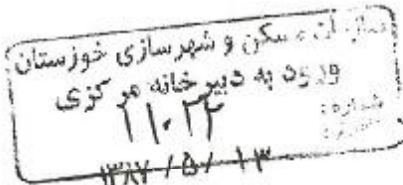 سازمان مسکن و شهرسازی خوزستان
ورود به دبیرخانه مرکزی
شماره: ۱۱۰۲۲
۱۳۸۷/۵/۱۳